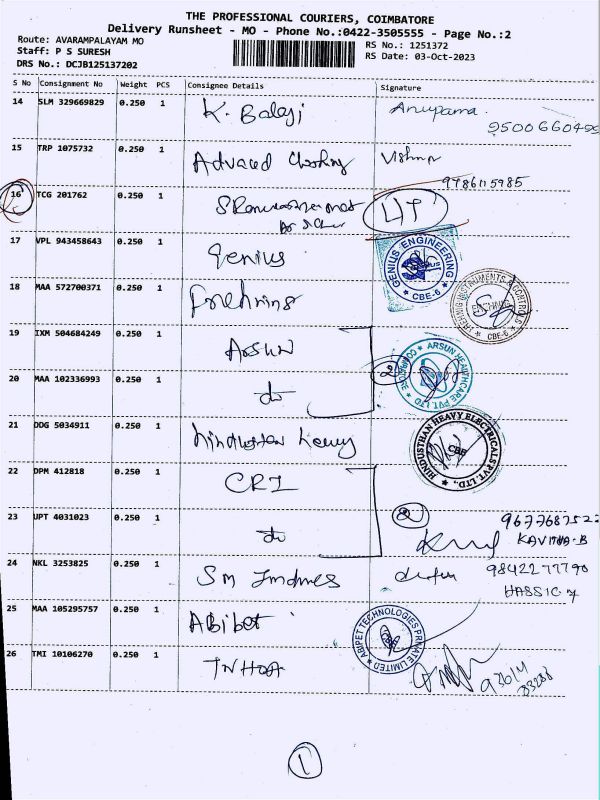 THE PROFESSIONAL COURIERS, COIMBATORE
Delivery Runsheet - MO - Phone No.:0422-3505555 - Page No.:2
Route: AVARAMPALAYAM MO
RS No.: 1251372
Staff: P S SURESH
RS Date: 03-Oct-2023
DRS No.: DCJB125137202
S No Consignment No Weight PCS Consignee Details Signature
14 SLM 329669829 0.250 1 K. Balaji Anupama
15 TRP 1075732 0.250 1
9786115985
16 TCG 201762 0.250 1
17 VPL 943458643 0.250 1 Genius GENIUS ENGINEERING ★ CBE-6 ★
18 MAA 572700371 0.250 1 INSTRUMENTS & CONTROLS ★ CBE-6 ★
19 IXM 504684249 0.250 1 Arsun
20 MAA 102336993 0.250 1 do 2 ARSUN HEALTHCARE PVT LTD COIMBATORE
21 DDG 5034911 0.250 1 HINDUSTHAN HEAVY ELECTRICALS PVT. LTD., CBE
22 DPM 412818 0.250 1 CRI
23 UPT 4031023 0.250 1 do 2
KAVITHA-B
24 NKL 3253825 0.250 1 9842277790
25 MAA 105295757 0.250 1 Abibet ABIPET TECHNOLOGIES PRIVATE LIMITED
26 TMI 10106270 0.250 1
1